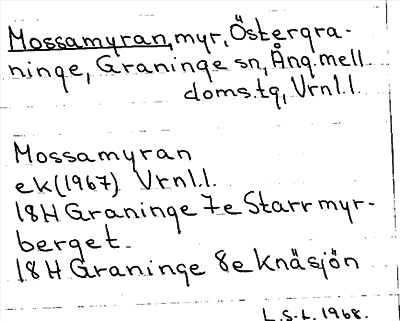 Mossamyran, myr, Östergra-
ninge, Graninge sn, Ång.mell.
doms.tg, Vrnl.l.
Mossamyran
ek (1967) Vrnl.l.
18H Graninge 7e Starrmyr-
berget.
18H Graninge 8e Knäsjön
L.S-L. 1968.